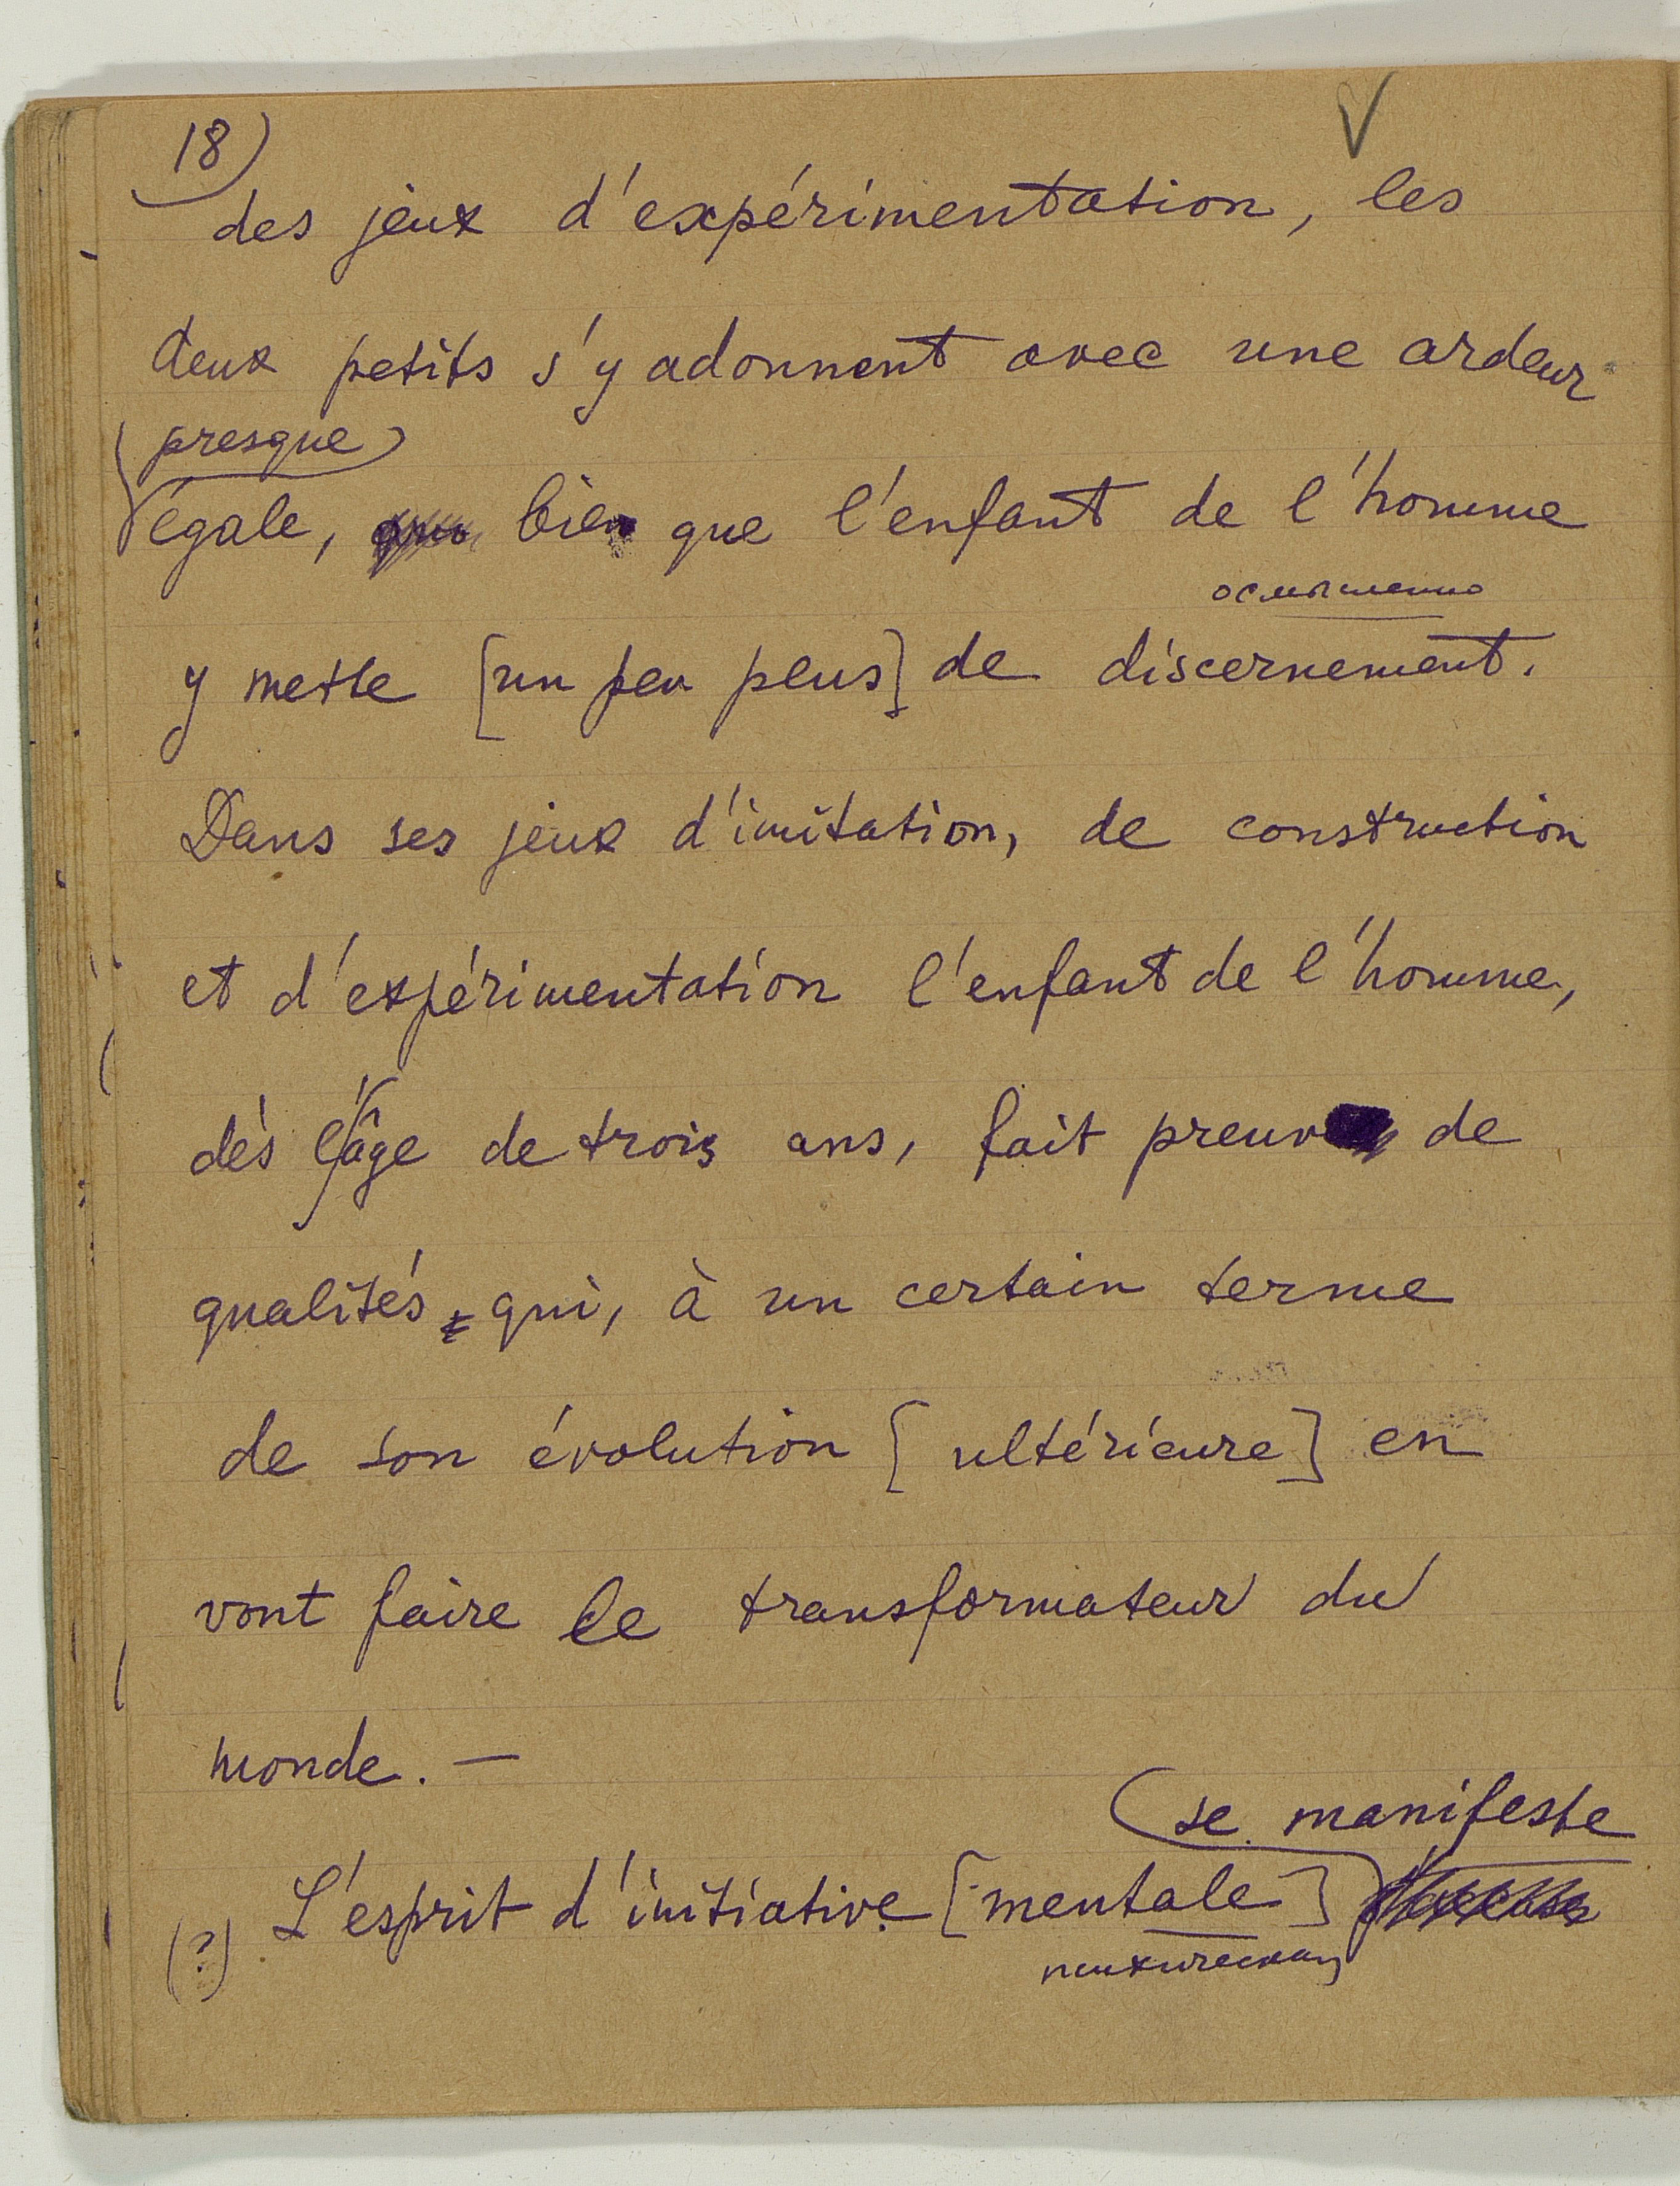 18)
des jeux d'expérimentation, les
deux petits s'y adonnent avec une ardeur
presque
égale, bien que l'enfant de l'homme
осмысленно
y mette [un peu plus] de discernement.
Dans ses jeux d'imitation, de construction
et d'expérimentation l'enfant de l'homme,
dès l'âge de trois ans, fait preuve de
qualités qui, à un certain terme
de son évolution [ultérieure] en
vont faire le transformateur du
monde. —
se manifeste
(?) L'esprit d'initiative [mentale]
психическая